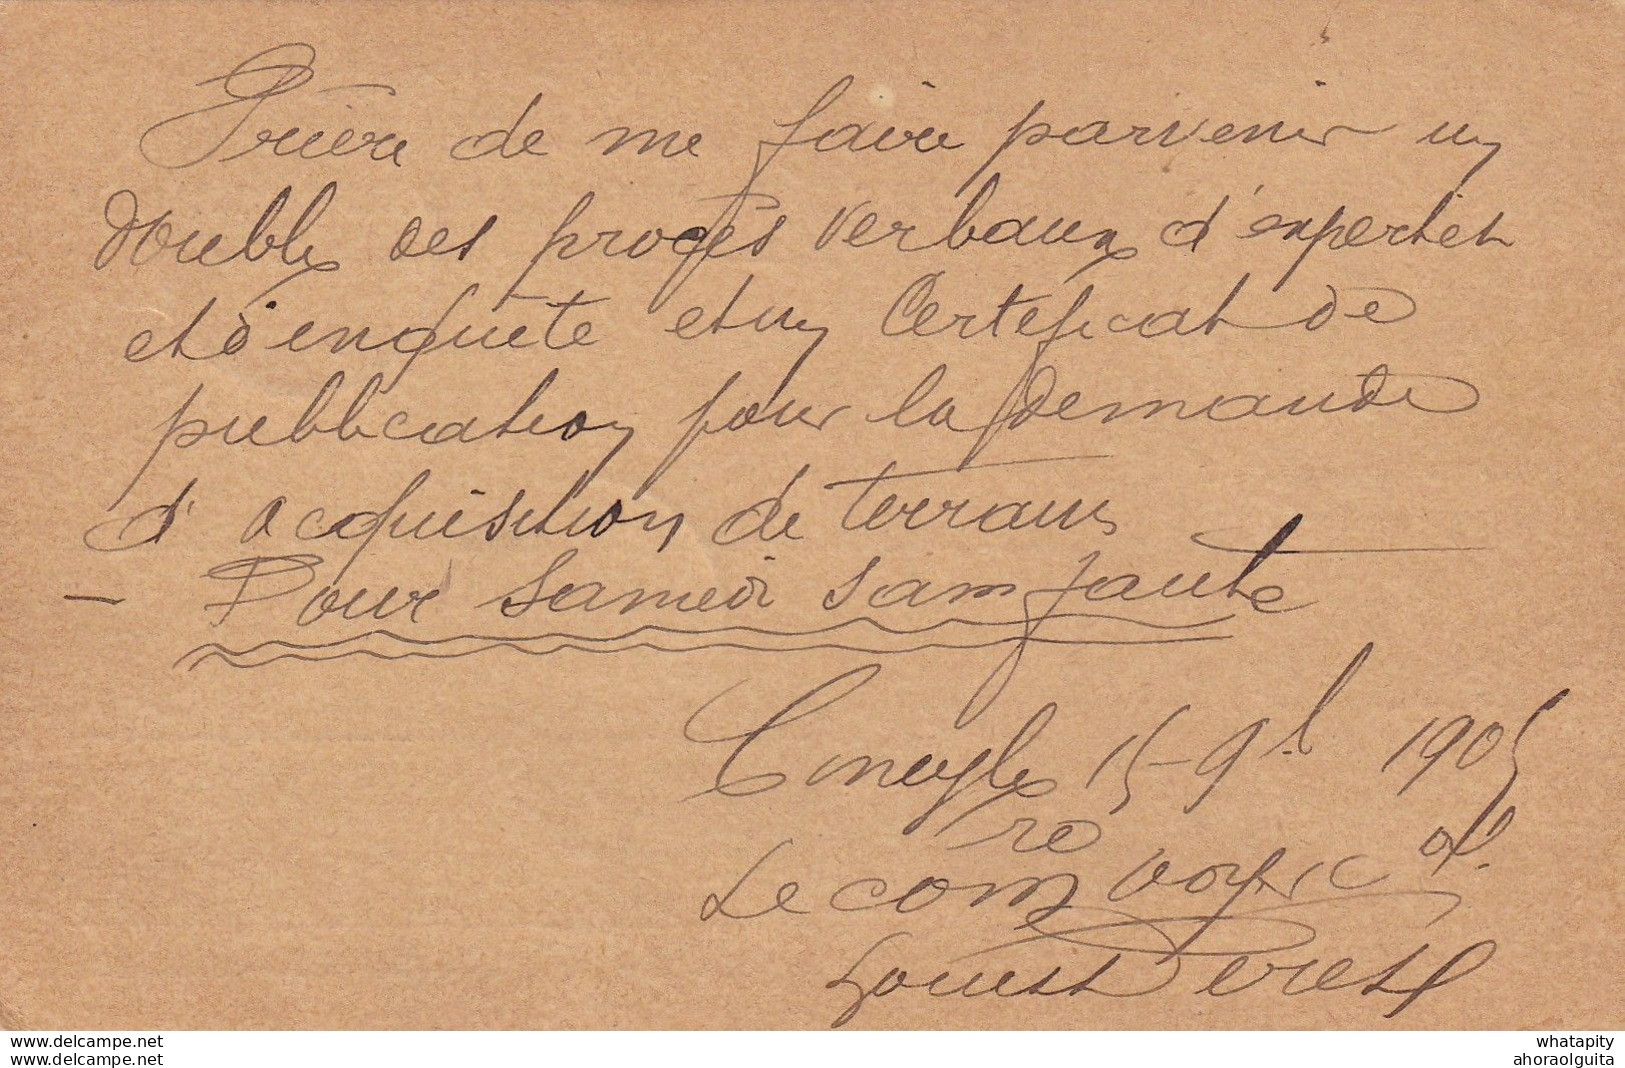 Prière de me faire parvenir un
double des procès verbaux d'expertises
et d'enquête et un Certificat de
publication pour la demande
d'acquisition de terrains
– Pour Samedi sans faute
Conneux 15-9bre 1905
Le comre voyer
Louis
whatapity
ahoraolguita
www.delcampe.net
www.delcampe.net